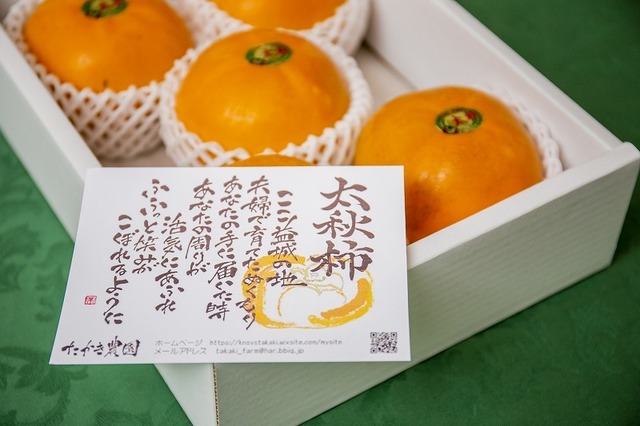 太秋柿
ここ益城の地
夫婦で育ためくもり
あなたの手に届いた時
あなたの周りが
活気にあふれ
ふふっと笑みが
こぼれるように
たかき農園
ホームページ https://knsystakaki.wixsite.com/mysite
メールアドレス takaki_farm@har.bbiq.jp